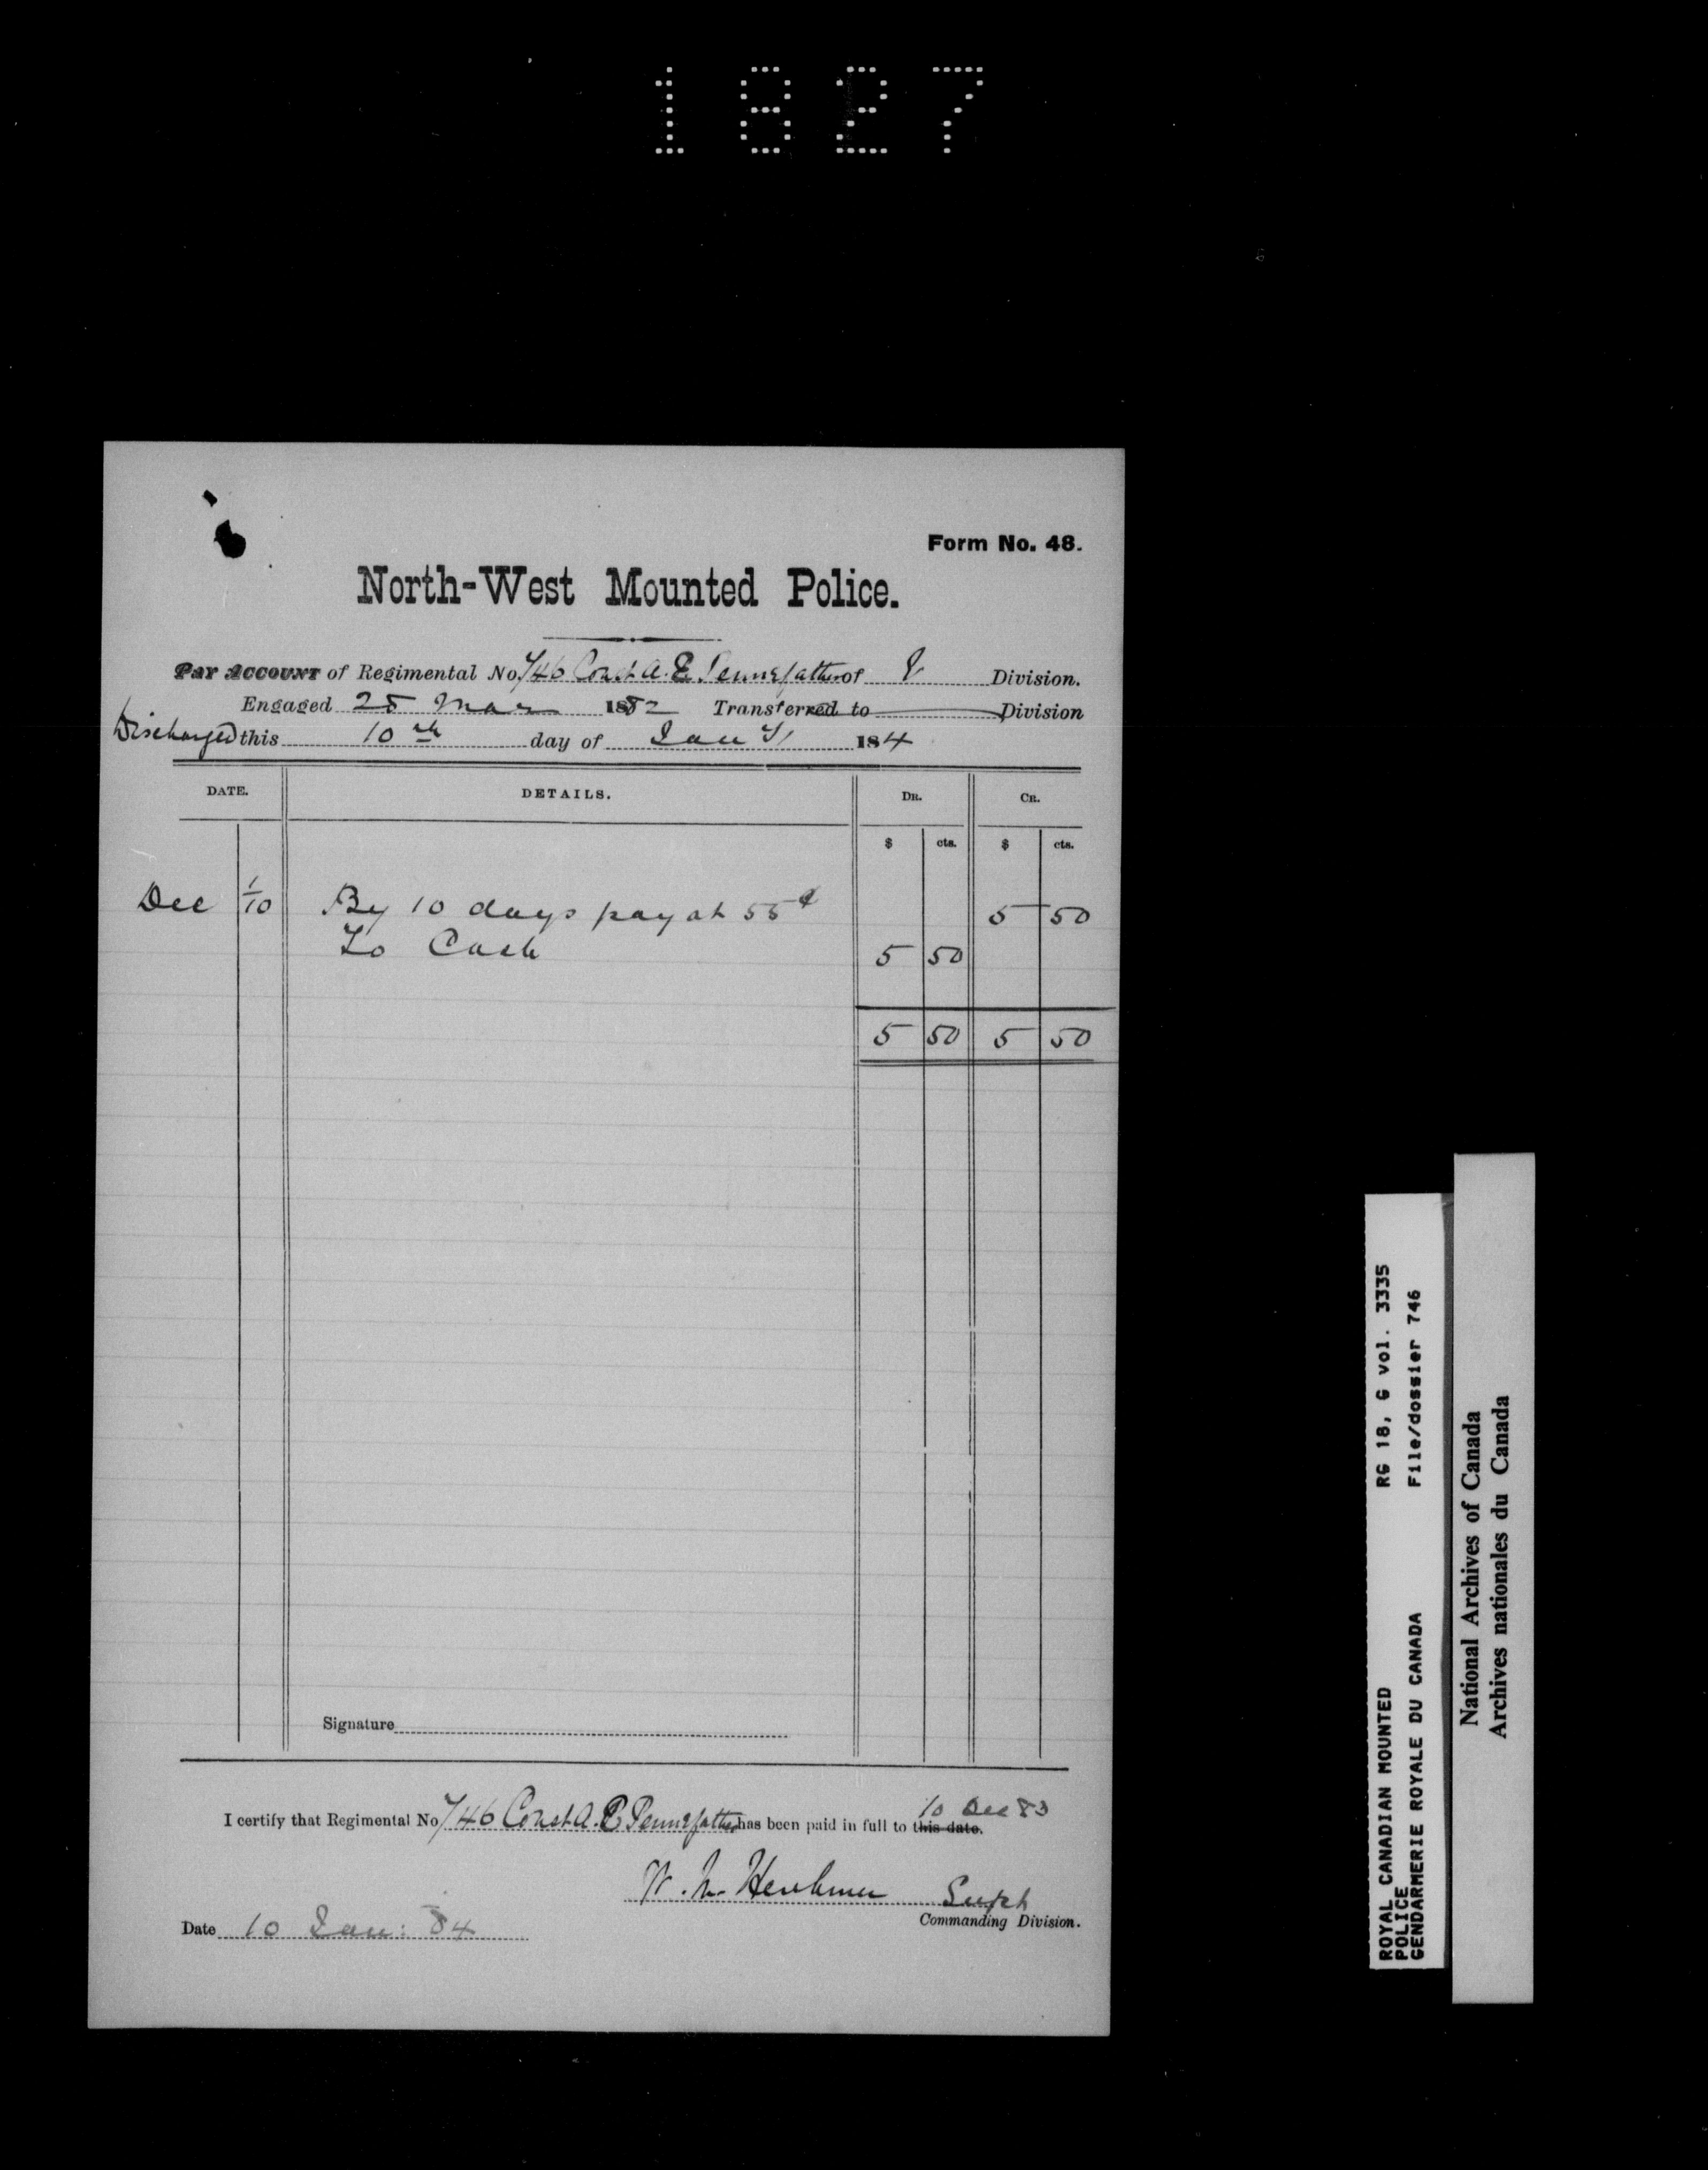 1827
Form No. 48.
North-West Mounted Police.
Pay Account of Regimental No. 746 Const A. E. Pennefather of Division.
Engaged 25 Mar 1882 Transferred to Division
Discharged this 10th day of Jany 184
DATE. DETAILS. DR. CR.
$ cts. $ cts.
Dec 1/10 By 10 days pay at 55¢ 5 50
To Cash 5 50
5 50 5 50
Signature
10 Dec 83
I certify that Regimental No 746 Const A. E. Pennefather has been paid in full to this date.
W. M. Herchmer Supt
Commanding Division.
Date 10 Jan: 84
ROYAL CANADIAN MOUNTED RG 18, G vol. 3335
POLICE
GENDARMERIE ROYALE DU CANADA File/dossier 746
National Archives of Canada
Archives nationales du Canada